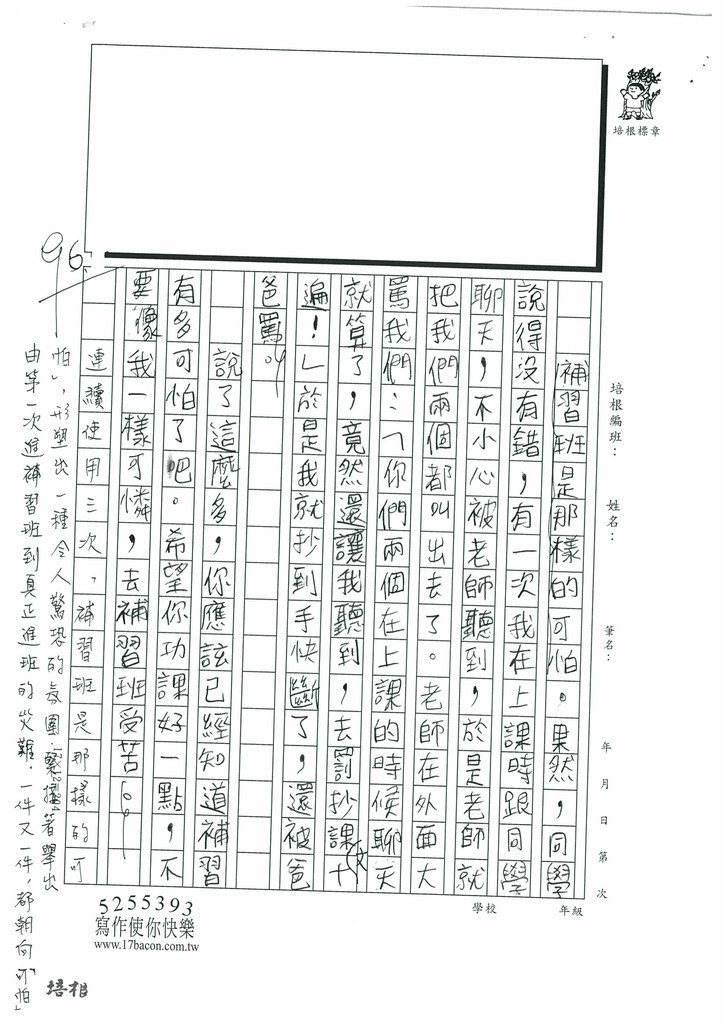 培根標章
培根編班： 姓名： 筆名： 年 月 日 第 次
學校 年級
補習班是那樣的可怕。果然，同學
說得沒有錯，有一次我在上課時跟同學
聊天，不小心被老師聽到，於是老師就
把我們兩個都叫出去了。老師在外面大
罵我們：「你們兩個在上課的時候聊天
就算了，竟然還讓我聽到，去罰抄課文十
遍！」於是我就抄到手快斷了，還被爸
爸罵。
說了這麼多，你應該已經知道補習
有多可怕了吧。希望你功課好一點，不
要像我一樣可憐，去補習班受苦。
96
連續使用三次，補習班是那樣的可
怕」，形塑出一種令人驚恐的氛圍。緊接著舉出
由第一次進補習班到真正進班的災難，一件又一件，都朝向「可怕」
5255393
寫作使你快樂
www.17bacon.com.tw
培根